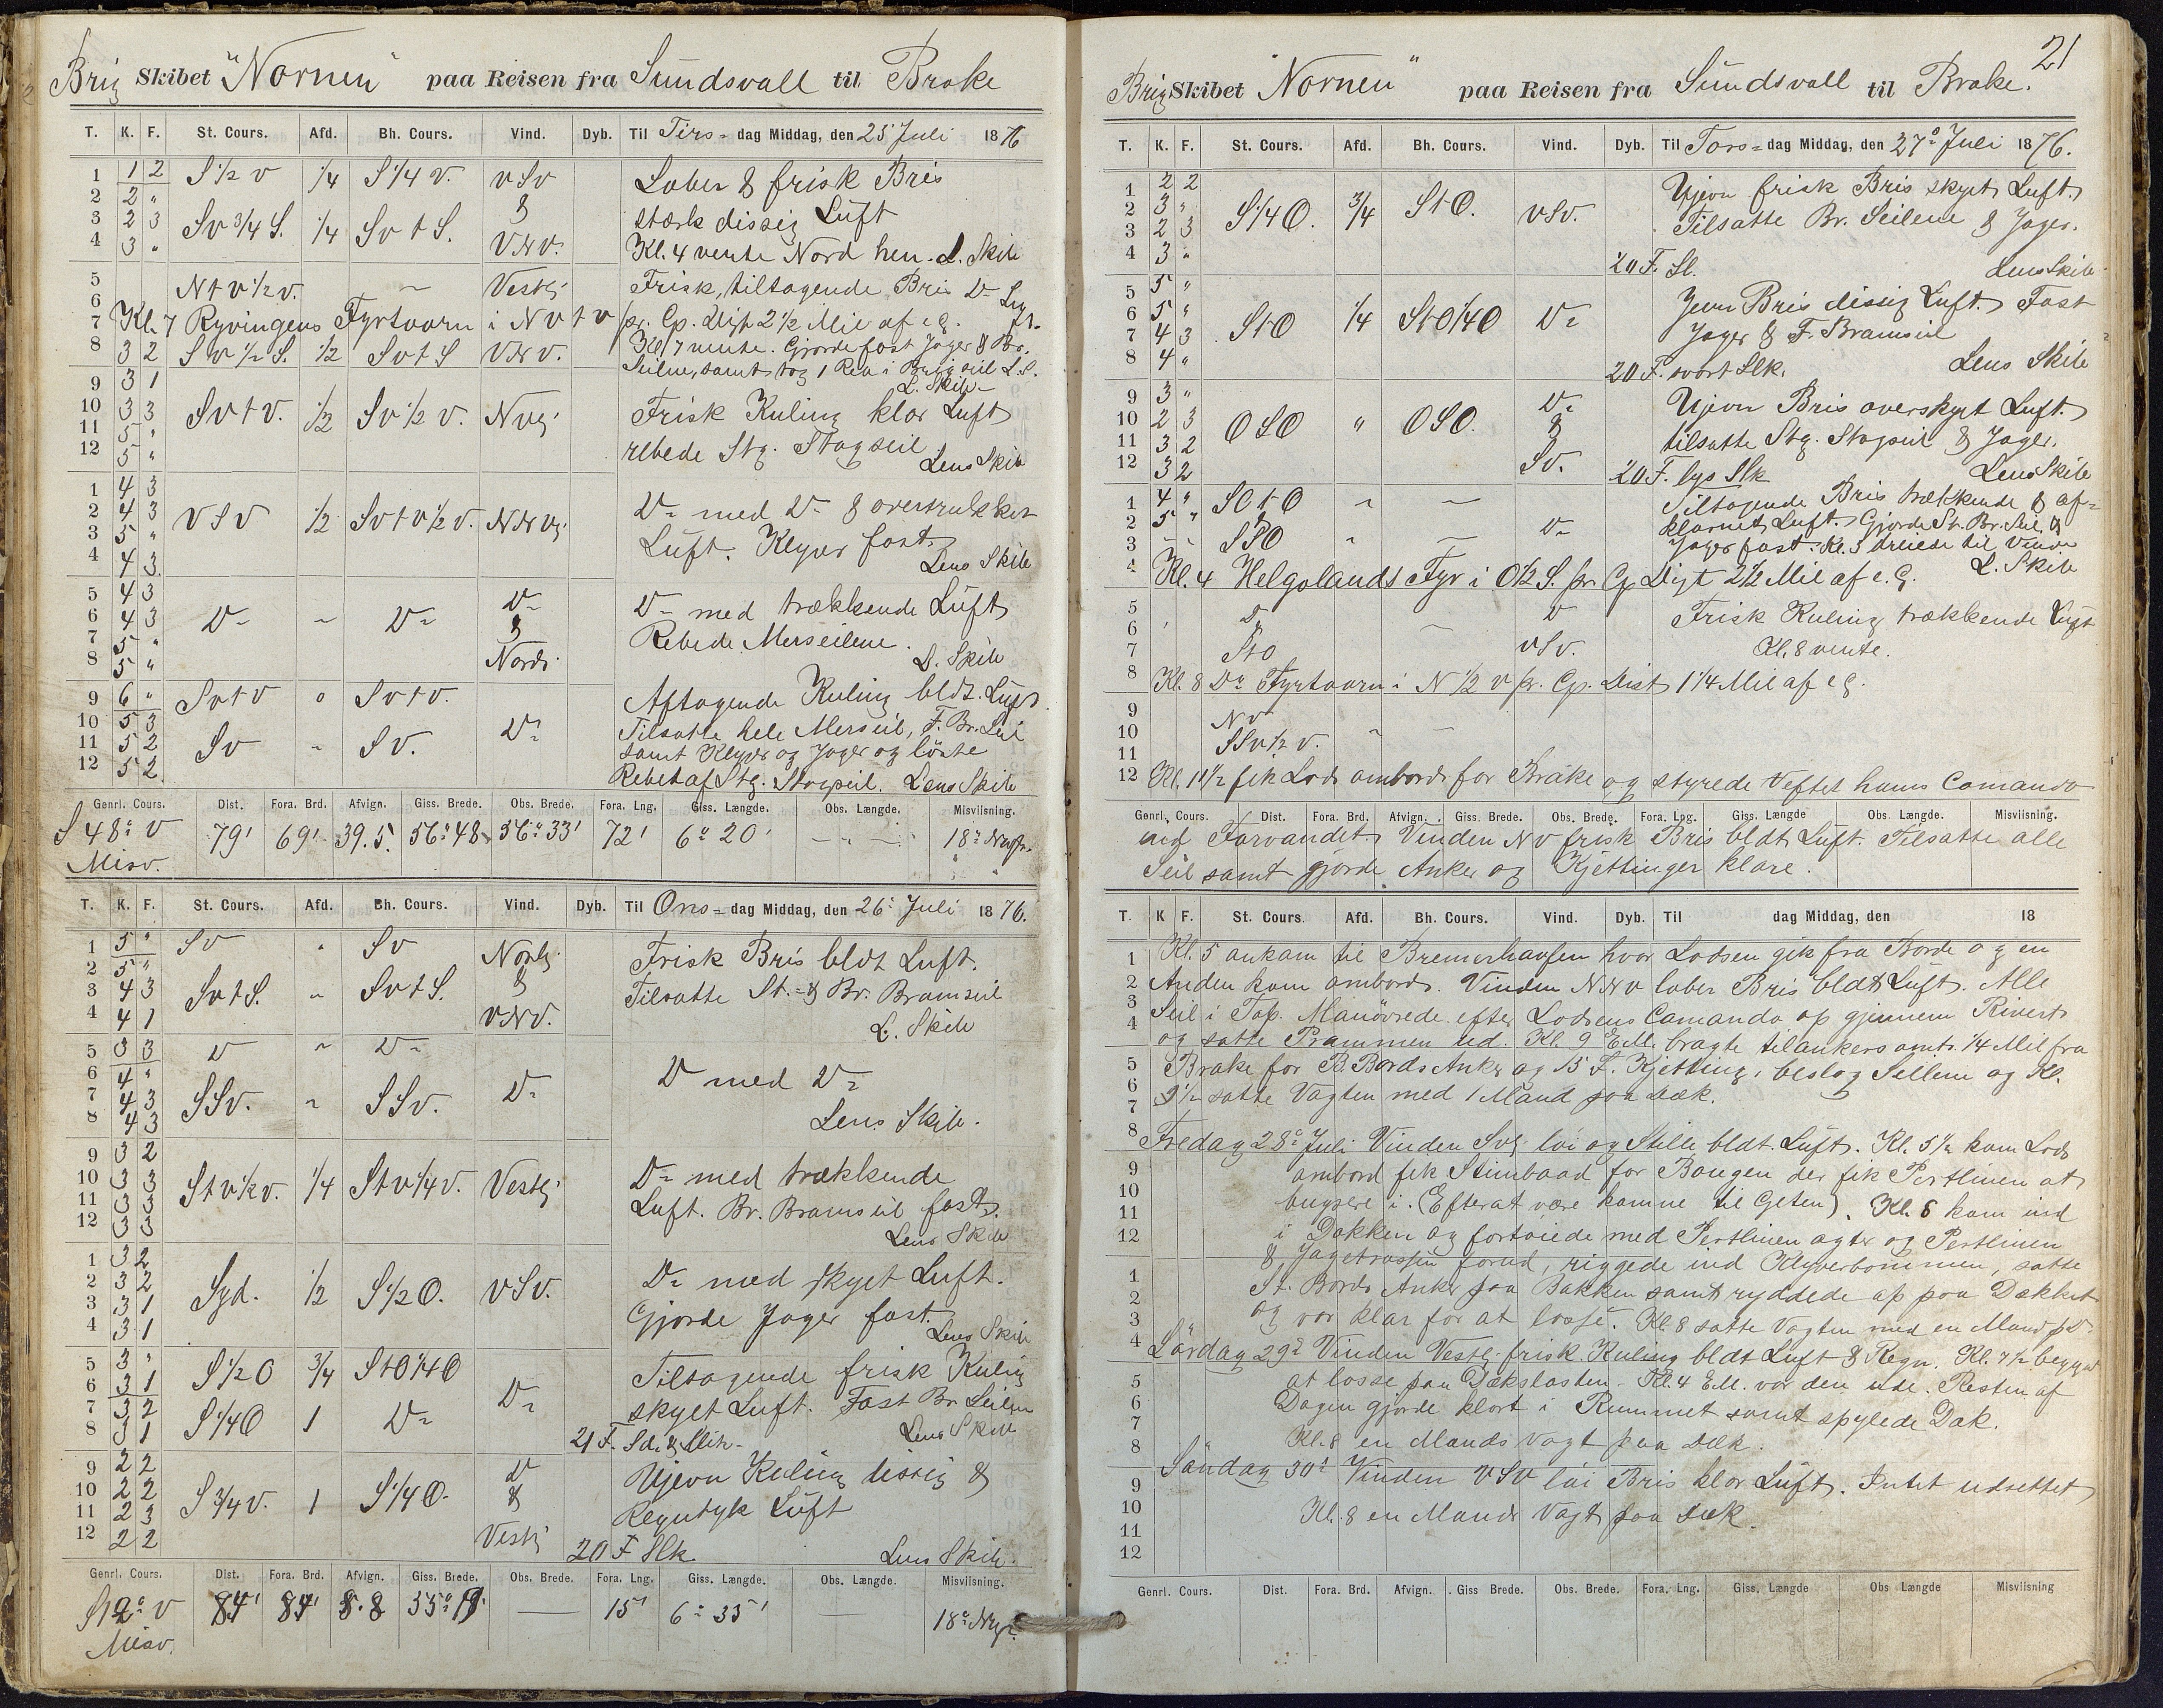 Brig Skibet "Nornen" paa Reisen fra Sundsvall til Brake
T. K. F. St. Cours. Afd. Bh. Cours. Vind. Dyb. Til Tirs- dag Middag, den 25 Juli 1876
1 1 2 S ½ v ¼ S ¼ v. vSv Laber & frisk Bris
2 2 " & stærk dissig Luft
3 2 3 Sv ¾ S. ¼ Sv t S. VNv. Kl. 4 vente Nord hen. L. Skib
4 3 "
5 Nt v ½ v. Vestlj Frisk, tiltagende Bris Do Luft
6
7 Kl. 7 Ryvingens Fyrtaarn i Nv t v pr. Cp. Dist 2 ½ Mil af e.g.
Kl 7 vente. Gjorde fast Jager & Br.
8 3 2 Sv ½ S. ½ Sv t S VNv. Seilene, samt tog 1 Reb i Brigseil L.S.
L. Skib
9 3 1
10 3 3 Sv t v. ½ Sv ½ v. Nvlj Frisk Kuling klar Luft
11 5 " rebede Stg. Stagseil
12 5 " Lens Skib
1 4 3
2 4 3 VSV ½ Sv t v ½ v. NNvlj Do med Do & overtrukket
3 5 " Luft. Klyver fast.
4 4 3. Lens Skib
5 4 3 Do Do med trækkende Luft
6 4 3 Do Do & Rebede Merseilene.
7 5 "
8 5 " Nordl. L. Skib
9 6 " Sv t v " Sv t v. Aftagende Kuling bldt. Luft
10 5 3 Tilsatte hele Merseil, F. Br. Seil
11 5 2 Sv " Sv. Do samt Klyver og Jager og löste
12 5 2 Rebet af Stg. Stagseil. Lens Skib
Genrl. Cours. Dist. Fora. Brd. Afvign. Giss. Brede. Obs. Brede. Fora. Lng. Giss. Længde. Obs. Længde. Misviisning.
S 48° v 79' 69' 39.5. 56°48 56° 33' 72' 6° 20' 18°
Misv.
T. K. F. St. Cours. Afd. Bh. Cours. Vind. Dyb. Til Ons- dag Middag, den 26. Juli 1876.
1 5 " Sv " Sv Nordlj Frisk Bris bldt Luft.
2 5 " &
3 4 3 Sv t S. " Sv t S. Tilsatte St. & Br. Bramseil
4 4 1 VNV. L. Skib
5 3 3 Do " Do
6 4 " Do med Do
7 4 3 SSv. " SSv. Do
8 4 3 Lens Skib.
9 3 2
10 3 3 St v ½ v. ¼ St v ¼ v. Vestlj Do med trækkende
11 3 3 Luft. Br. Bramseil fast.
12 3 3 Lens Skib
1 3 2
2 3 2 Syd. ½ S ½ O. VSv. Do med skyet Luft.
3 3 1 Gjorde Jager fast.
4 3 1 Lens Skib
5 3 " S ½ O ¾ StO ¼ O Tiltagende frisk Kuling
6 3 1 Do skyet Luft. Fast Br Seilene
7 3 2 S ¼ O 1 Do
8 3 1 21 F. Sd. & Slik. Lens Skib
9 2 2 Do Ujevn Kuling dissig &
10 2 2 S ¾ v. 1 S ¼ O. & Regntyk Luft
11 2 3
12 2 2 Vestlj 20 F Slk. Lens Skib.
Genrl. Cours. Dist. Fora. Brd. Afvign. Giss. Brede. Obs. Brede. Fora. Lng. Giss. Længde. Obs. Længde. Misviisning.
S 12° v 84' 84' 8.8 55° 19' 15' 6° 35' 18°
Misv.
21
Brig Skibet "Nornen" paa Reisen fra Sundsvall til Brake.
T. K. F. St. Cours. Afd. Bh. Cours. Vind. Dyb. Til Tors- dag Middag, den 27° Juli 1876.
1 2 2 Ujevn frisk Bris skyet Luft.
2 3 " S ¼ O. ¾ StO. VSv. Tilsatte Br. Seilene & Jager.
3 2 3
4 3 " 20 F. Sl. Lens Skib
5 5 " Jevn Bris dissig Luft. Fast
6 5 " StO ¼ StO ¼ O Do Jager & F. Bramseil
7 4 3
8 4 " 20 F. svart Slk. Lens Skib
9 3 " Do Ujevn Bris overskyet Luft.
10 2 3 OSO " OSO. & tilsatte Stg. Stagseil & Jager.
11 3 2 Sv.
12 3 2 20 F. lys Slk Lens Skib
1 4 " SO t O Tiltagende Bris trækkende & af-
2 5 " & Do klarnet Luft. Gjorde St. Br. Seil. &
3 SSO Jager fast. Kl. 3 dreiede til Vinden
4 Kl. 4 Helgolands Fyr i O ½ S. pr. Cp Dist 2 ½ Mil af e.g. L. Skib
5 Do Do Frisk Kuling trækkende Luft
6
7 StO VSv. Kl. 8 vente.
8 Kl. 8 Do Fyrtaarn i N ½ v pr. Cp. Dist 1 ¼ Mil af e.g.
9 Nv
10 SSv ½ v.
11
12 Kl. 11 ½ fik Lods ombord for Brake og styrede efter hans Comando
Genrl. Cours. Dist. Fora. Brd. Afvign. Giss. Brede. Obs. Brede. Fora. Lng. Giss. Længde Obs. Længde. Misviisning.
ad Farvandet. Vinden NV frisk Bris bldt Luft. Tilsatte alle
Seil samt gjorde Anker og Kjettinger klare.
T. K F. St. Cours. Afd. Bh. Cours. Vind. Dyb. Til dag Middag, den 18
1 Kl. 5 ankom til Bremerhaven hvor Lodsen gik fra Borde og en
2 Anden kom ombord. Vinden NNV laber Bris bldt Luft. Alle
3 Seil i Top. Manövrede efter Lodsens Comando op gjennem Rivert
4 og satte Prammen ud. Kl. 9 E.M. bragte tilankers omtr. ¼ Mil fra
5 Brake for B. Bords Anker og 15 F. Kjetting, beslog Seilene og Kl.
6 9 ½ satte Vagten med 1 Mand paa Dæk.
7
8 Fredag 28° Juli Vinden Svlj löi og Stille bldt. Luft. Kl. 5 ½ kom Lods
9 ombord fik Stimbaad for Bougen der fik Pertlinen at
10 bugsere i. (Efterat være komne til Geten). Kl. 6 kom ind
11 i Dokken og fortöiede med Pertlinen agter og Pertlinen
12 & Jagetrossen forud, riggede ind Klyverbommen, satte
1 St. Bords Anker paa Bakken samt ryddede op paa Dækket
2 og var klar for at losse. Kl. 8 satte Vagten med en Mand pD.
3
4 Lördag 29° Vinden Vestlj frisk Kuling bldt Luft & Regn. Kl. 7 ½ begynt
5 at losse paa Dækslasten. Kl. 4 E.M. var den ude. Resten af
6 Dagen gjorde klart i Rummet samt spylede Dæk.
7 Kl. 8 en Mands Vagt paa Dæk.
8 Söndag 30° Vinden VSV löi Bris klar Luft. Intet udrettet
9 Kl. 8 en Mands Vagt paa Dæk.
10
11
12
Genrl. Cours. Dist. Fora. Brd. Afvign. Giss Brede. Obs. Brede. Fora. Lng. Giss. Længde Obs Længde Misviisning